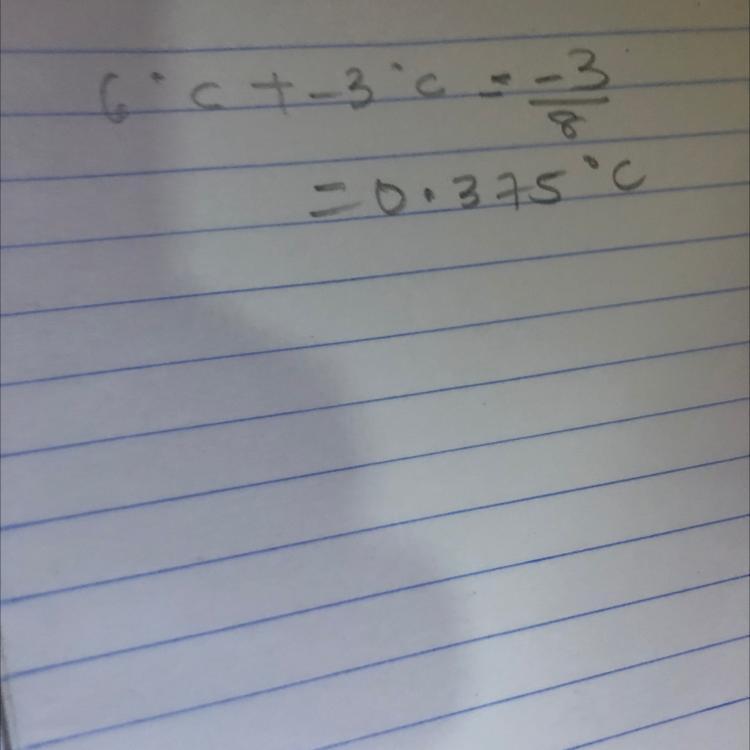 6°c + -3°c = -3/8
= 0.375°C